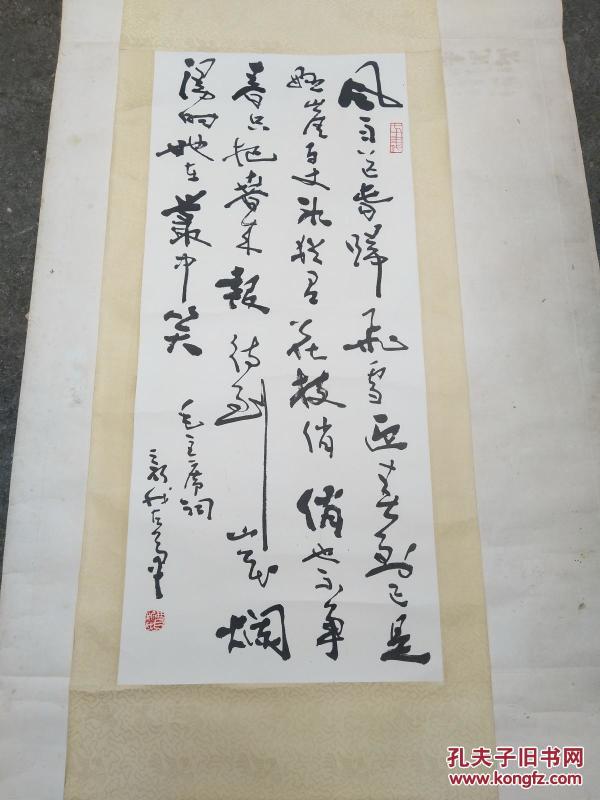 风雨送春归飞雪迎春到已是
悬崖百丈冰犹有花枝俏俏也不争
春只把春来報待到山花爛
漫时她在叢中笑
毛主席词
孔夫子旧书网
www.kongfz.com